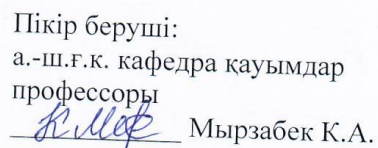 Пікір беруші:
а.-ш.ғ.к. кафедра қауымдар
профессоры
Мырзабек К.А.